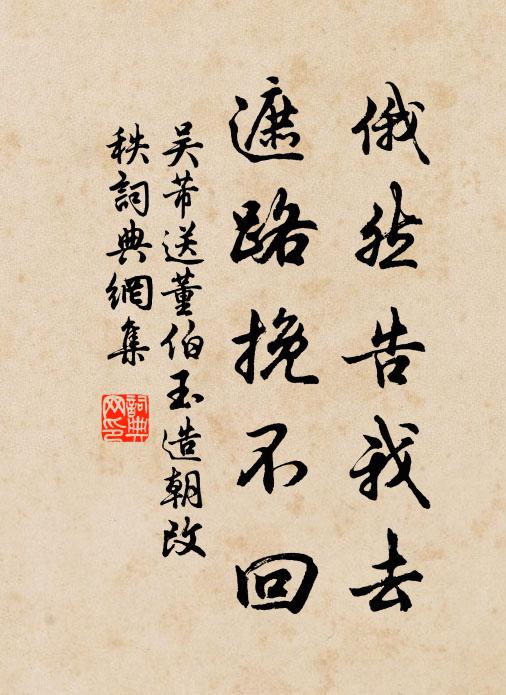 俄然告我去
遮路挽不回
吴芾送董伯玉造朝改
秩詞典網集
詞典網印